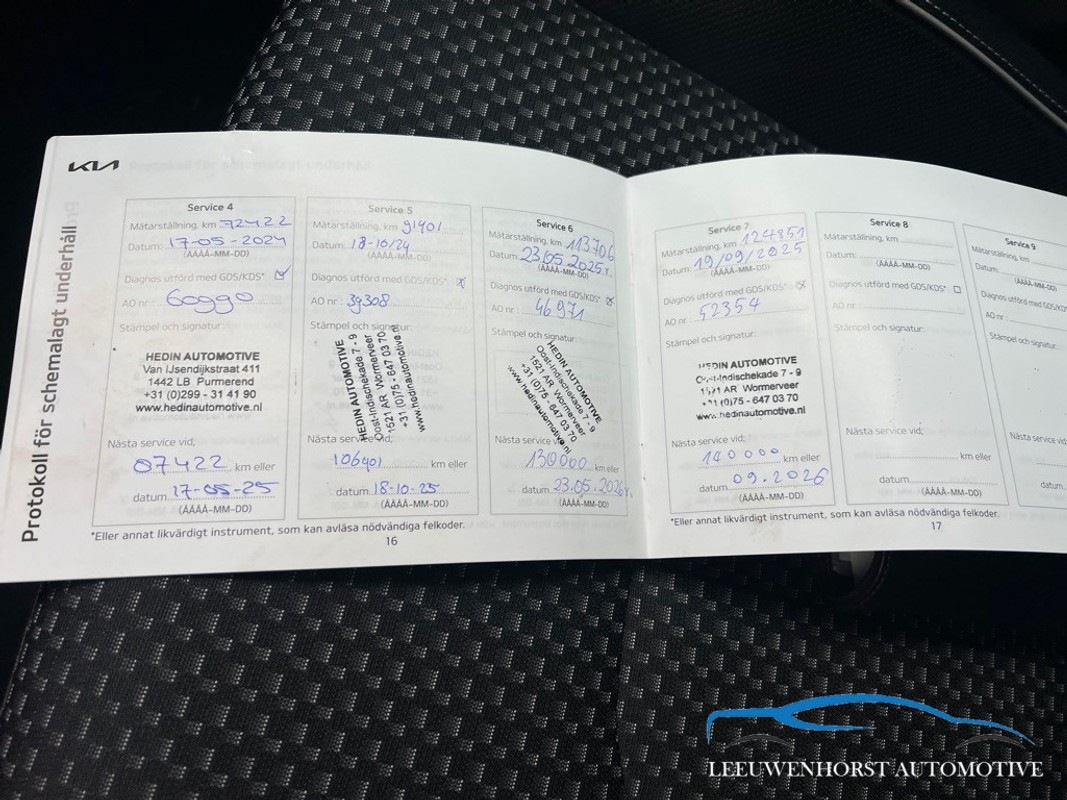 KIA
Protokoll för schemalagt underhåll
Service 4
Mätarställning, km 72422
Datum: 17-05-2024
(ÅÅÅÅ-MM-DD)
Diagnos utförd med GDS/KDS*
AO nr: 60990
Stämpel och signatur:
HEDIN AUTOMOTIVE
Van IJsendijkstraat 411
1442 LB Purmerend
+31 (0)299 - 31 41 90
www.hedinautomotive.nl
Nästa service vid;
87422 km eller
datum 17-05-25
(ÅÅÅÅ-MM-DD)
Service 5
Mätarställning, km 91401
Datum: 18-10/24
(ÅÅÅÅ-MM-DD)
Diagnos utförd med GDS/KDS*
AO nr: 39308
Stämpel och signatur:
HEDIN AUTOMOTIVE
Oost-Indischekade 7 - 9
1521 AR Wormerveer
+31 (0)75 - 647 03 70
www.hedinautomotive.nl
Nästa service vid;
106401 km eller
datum 18-10-25
(ÅÅÅÅ-MM-DD)
Service 6
Mätarställning, km 113706
Datum: 23.05.2025r.
(ÅÅÅÅ-MM-DD)
Diagnos utförd med GDS/KDS*
AO nr: 46971
Stämpel och signatur:
HEDIN AUTOMOTIVE
Oost-Indischekade 7 - 9
1521 AR Wormerveer
+31 (0)75 - 647 03 70
www.hedinautomotive.nl
Nästa service vid;
130000 km eller
datum 23.05.2026r.
(ÅÅÅÅ-MM-DD)
*Eller annat likvärdigt instrument, som kan avläsa nödvändiga felkoder.
16
Service 7
Mätarställning, km 124851
Datum: 19/09/2025
(ÅÅÅÅ-MM-DD)
Diagnos utförd med GDS/KDS*
AO nr: 52354
Stämpel och signatur:
HEDIN AUTOMOTIVE
Oost-Indischekade 7 - 9
1521 AR Wormerveer
+31 (0)75 - 647 03 70
www.hedinautomotive.nl
Nästa service vid;
140000 km eller
datum 09.2026
(ÅÅÅÅ-MM-DD)
Service 8
Mätarställning, km
Datum:
(ÅÅÅÅ-MM-DD)
Diagnos utförd med GDS/KDS*
AO nr:
Stämpel och signatur:
Nästa service vid;
km eller
datum
(ÅÅÅÅ-MM-DD)
Service 9
Mätarställning, km
Datum:
(ÅÅÅÅ-MM-DD)
Diagnos utförd med GDS/KDS
AO nr:
Stämpel och signatur:
Nästa service vid;
datum
*Eller annat likvärdigt instrument, som kan avläsa nödvändiga felkoder.
17
LEEUWENHORST AUTOMOTIVE